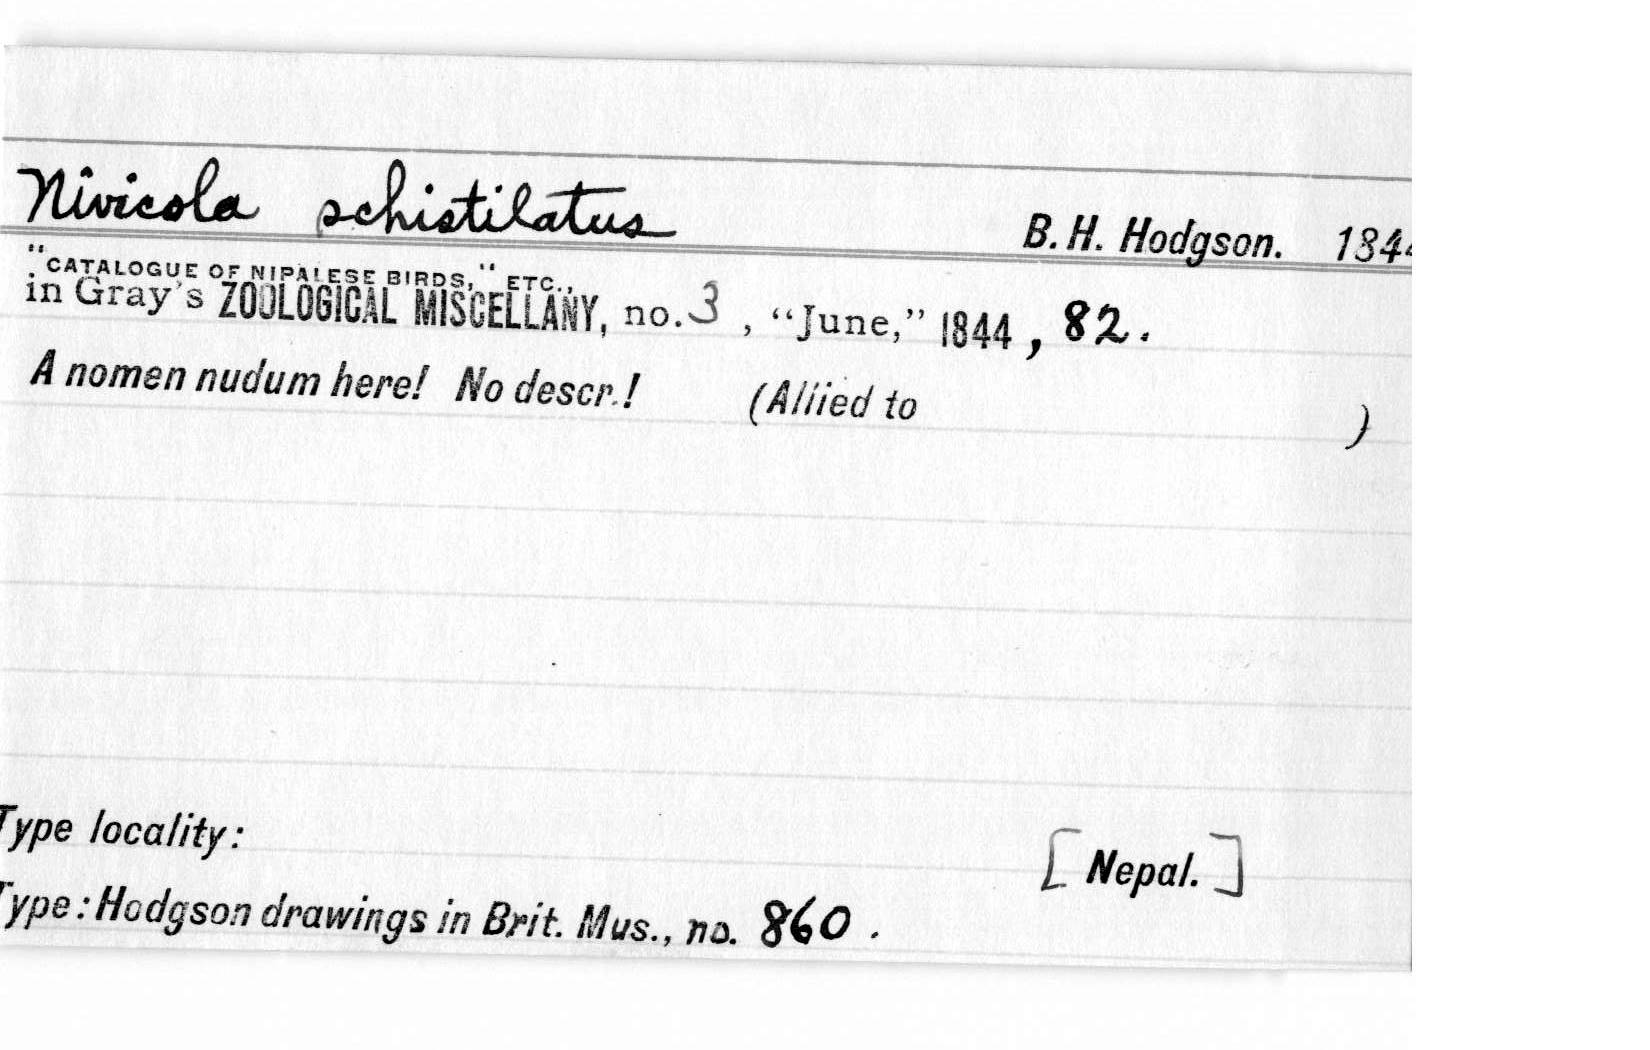 Nivicola schistilatus B. H. Hodgson. 1844
"CATALOGUE OF NIPALESE BIRDS," ETC.,
in Gray's ZOOLOGICAL MISCELLANY, no. 3, “June,” 1844, 82.
A nomen nudum here! No descr.! (Allied to )
Type locality: [Nepal.]
Type: Hodgson drawings in Brit. Mus., no. 860.